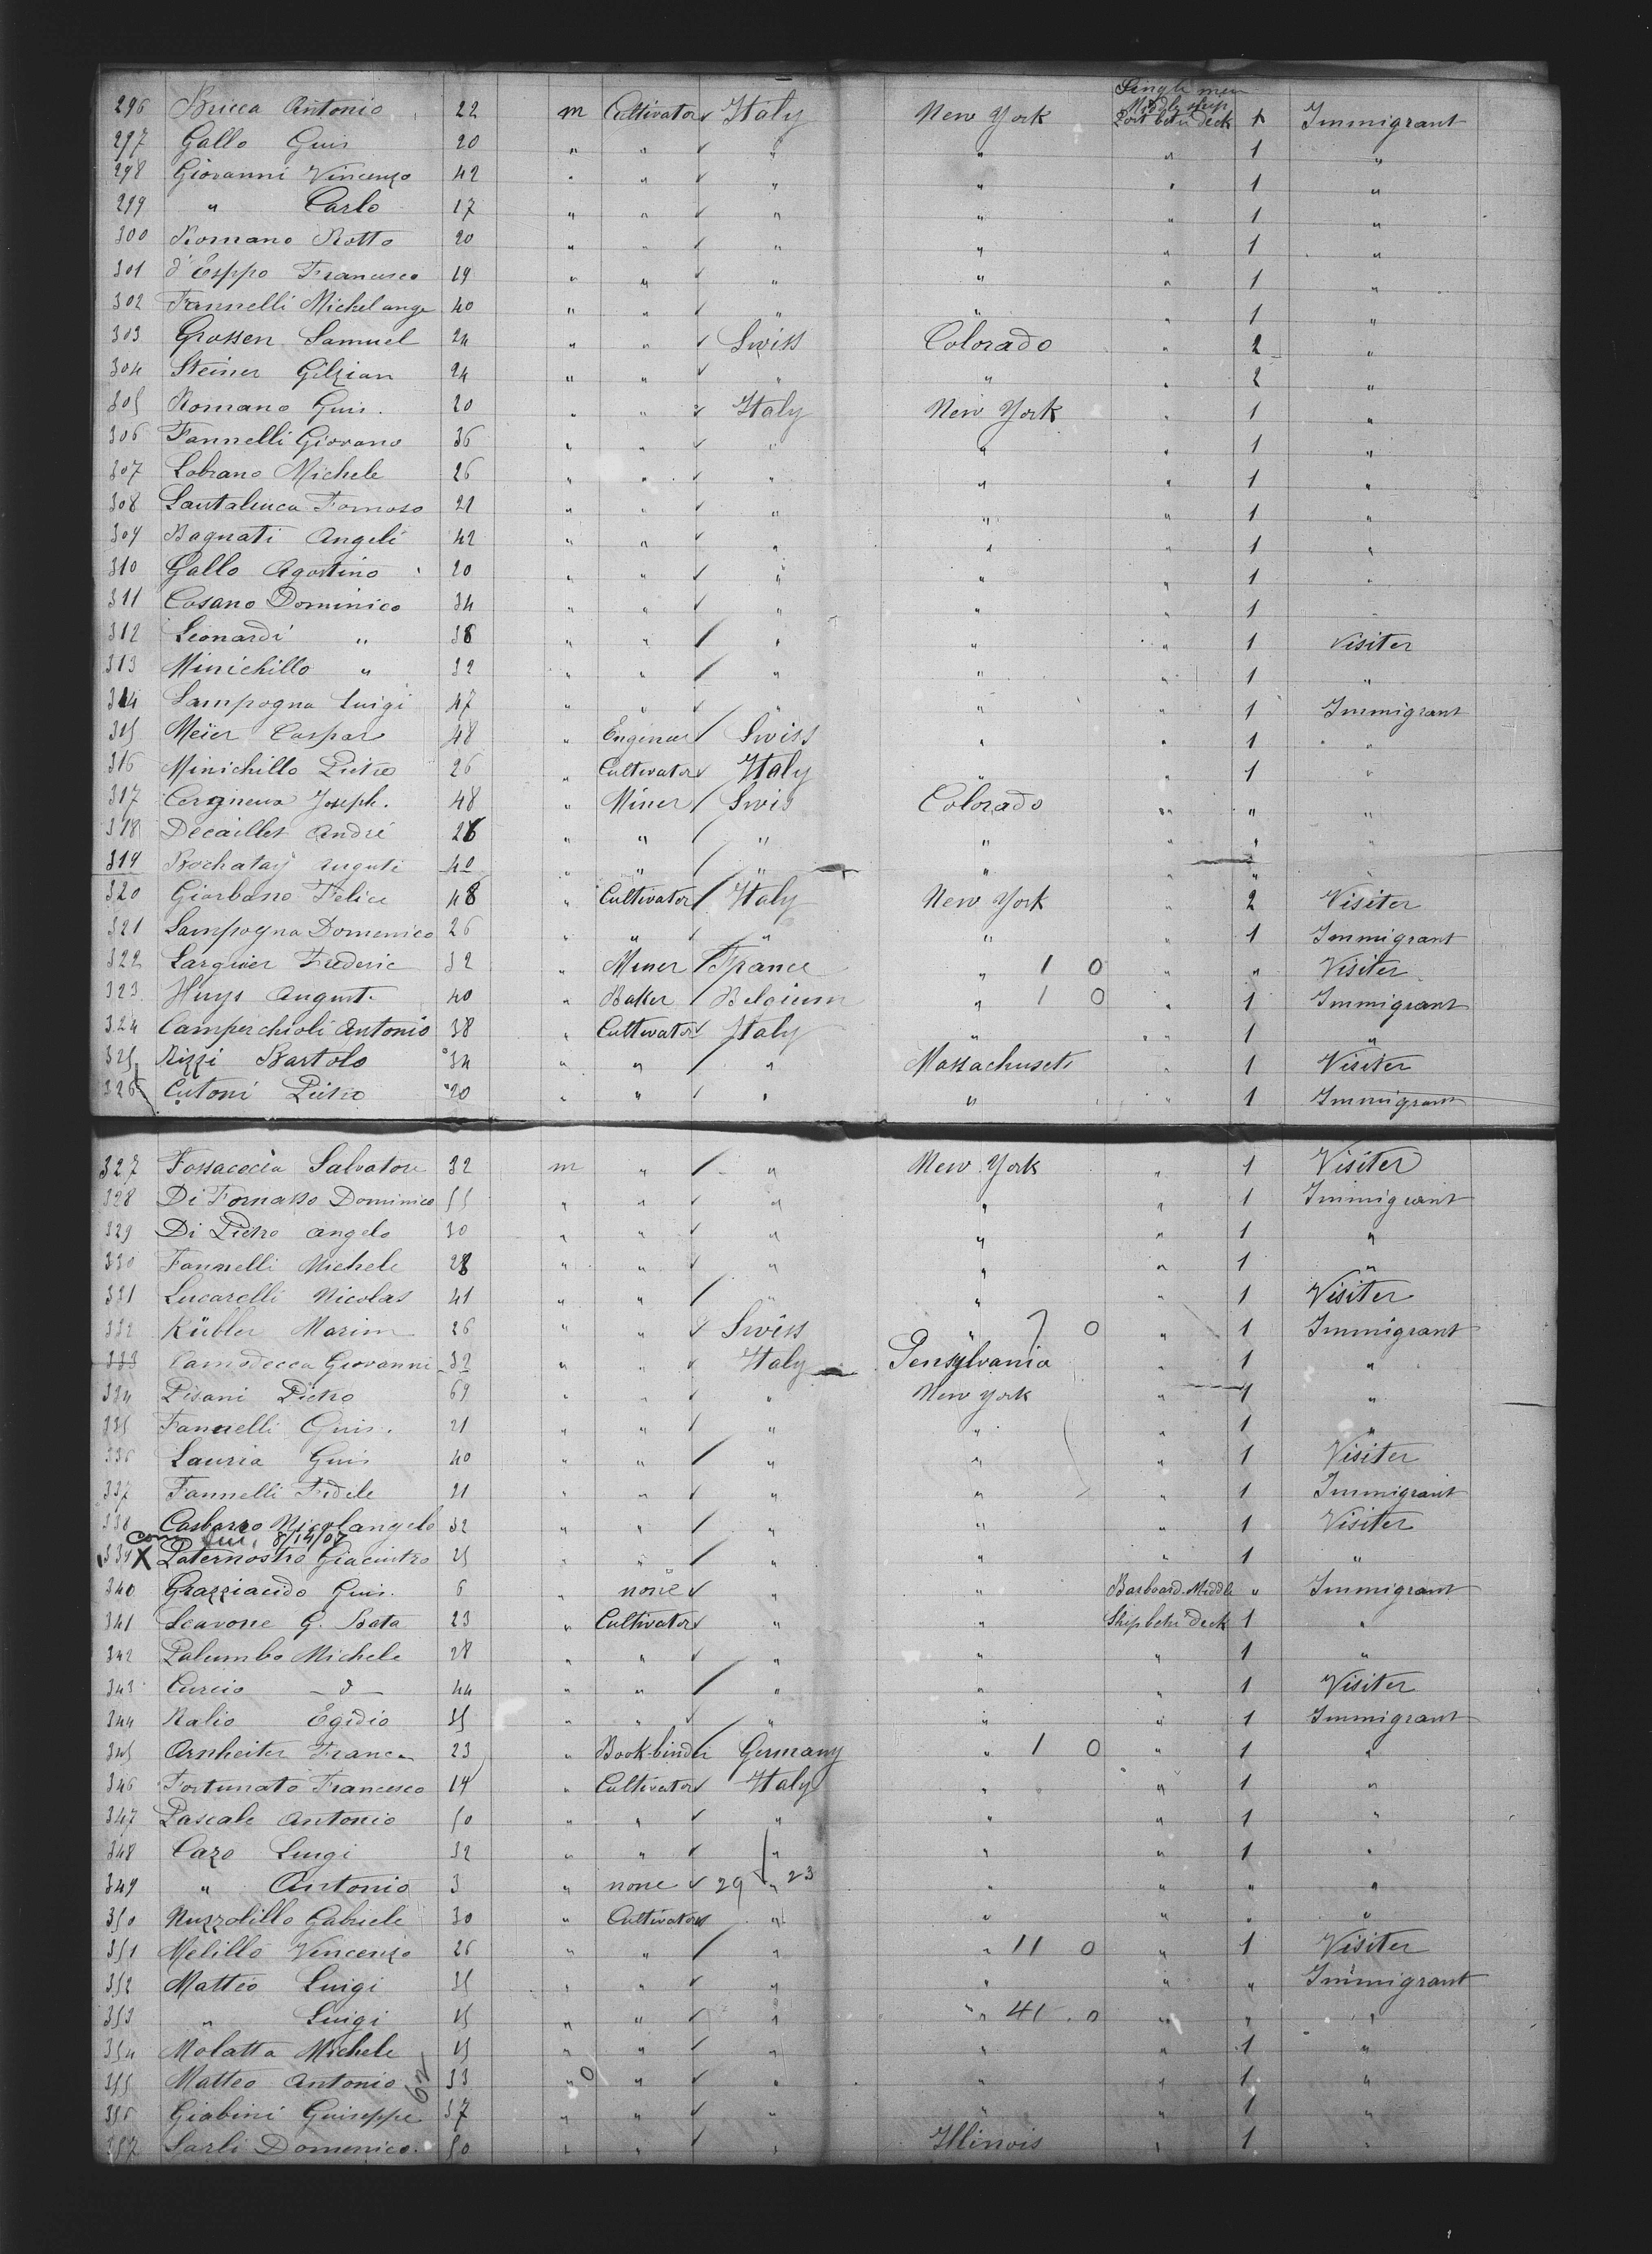 Single men
Middle ship
296 Bricca Antonio 22 m Cultivator Italy New York Port betw deck 1 Immigrant
297 Gallo Guis 20 " " " " " 1 "
298 Giovanni Vincenzo 42 " " " " " 1 "
299 " Carlo 17 " " " " " 1 "
300 Romano Rotto 20 " " " " " 1 "
301 d'Esppo Francesco 19 " " " " " 1 "
302 Fannelli Michelange 40 " " " " " 1 "
303 Grossen Samuel 24 " " Swiss Colorado " 2 "
304 Steiner Gilgian 24 " " " " " 2 "
305 Romano Guis. 20 " " Italy New York " 1 "
306 Fannelli Giovano 36 " " " " " 1 "
307 Lobrano Michele 26 " " " " " 1 "
308 Santaluca Fomoso 21 " " " " " 1 "
309 Bagnati Angeli 42 " " " " " 1 "
310 Gallo Agostino 20 " " " " " 1 "
311 Cosano Dominico 34 " " " " " 1 "
312 Leonardi " 38 " " " " " 1 Visiter
313 Minichillo " 32 " " " " " 1 "
314 Sampogna Luigi 47 " " " " " 1 Immigrant
315 Meier Caspar 48 " Engeneer Swiss " " 1 "
316 Minichillo Pietro 26 " Cultivator Italy " " 1 "
317 Joseph. 48 " Miner Swis Colorado " " "
318 Decaillet André 26 " " " " " " "
319 Rochatay 40 " " " " " "
320 Giorbano Felice 48 " Cultivator Italy New York " 2 Visiter
321 Sampogna Domenico 26 " " " " " 1 Immigrant
322 Larguier Frederic 32 " Miner France " 1 0 " " Visiter
323 Huys August. 40 " Baker Belgium " 1 0 " 1 Immigrant
324 Camperchioli Antonio 38 " Cultivator Italy " " 1 "
325 Rizzi Bartolo 34 " " " Massachusets " 1 Visiter
326 Cutoni Pietro 20 " " " " " 1 Immigrant
327 Fossacecia Salvatore 32 m " " New York " 1 Visiter
328 Di Fomasso Dominico 55 " " " " " 1 Immigrant
329 Di Pietro Angelo 30 " " " " " 1 "
330 Fannelli Michele 28 " " " " " 1 "
331 Lucarelli Nicolas 41 " " " " " 1 Visiter
332 Kübler Marim 26 " " Swiss " 7 0 " 1 Immigrant
333 Camodecca Giovanni 32 " " Italy Pensylvania " 1 "
334 Pisani Pietro 69 " " " New York " 1 "
335 Fannelli Guis. 21 " " " " " 1 "
336 Lauria Guis 40 " " " " " 1 Visiter
337 Fannelli Fidele 21 " " " " " 1 Immigrant
338 Casbarro Nicolangelo 32 " " " " " 1 Visiter
8/14/07
339 X Paternostro Giacintro 25 " " " " " 1 "
340 Grazziando Guis. 6 " none " " Barboard Middle " Immigrant
341 Scavone G. Bata 23 " Cultivator " " Ship betw deck 1 "
342 Palumbo Michele 28 " " " " " 1 "
343 Curcio — d — 44 " " " " " 1 Visiter
344 Ralio Egidio 35 " " " " " 1 Immigrant
345 Arnheiter 23 " Book-binder Germany " 1 0 " 1 "
346 Fortunato Francesco 14 " Cultivator Italy " " 1 "
347 Pascale Antonio 50 " " " " " 1 "
348 Cazo Luigi 32 " " " " " 1 "
349 " Antonio 3 " none 29 " 23 " " " "
350 Nuzzolillo Gabriele 30 " Cultivator " " " " "
351 Melillo Vincenzo 26 " " " " 11 0 " 1 Visiter
352 Matteo Luigi 35 " " " " " " Immigrant
353 " Luigi 15 " " " " 41 . 0 " " "
354 Molatta Michele 15 " " " " " 1 "
355 Matteo Antonio 62 33 " 0 " " " " 1 "
356 Giabini Guiseppe 37 " " " " " 1 "
357 Sarli Domenico. 50 " " " Illinois " 1 "